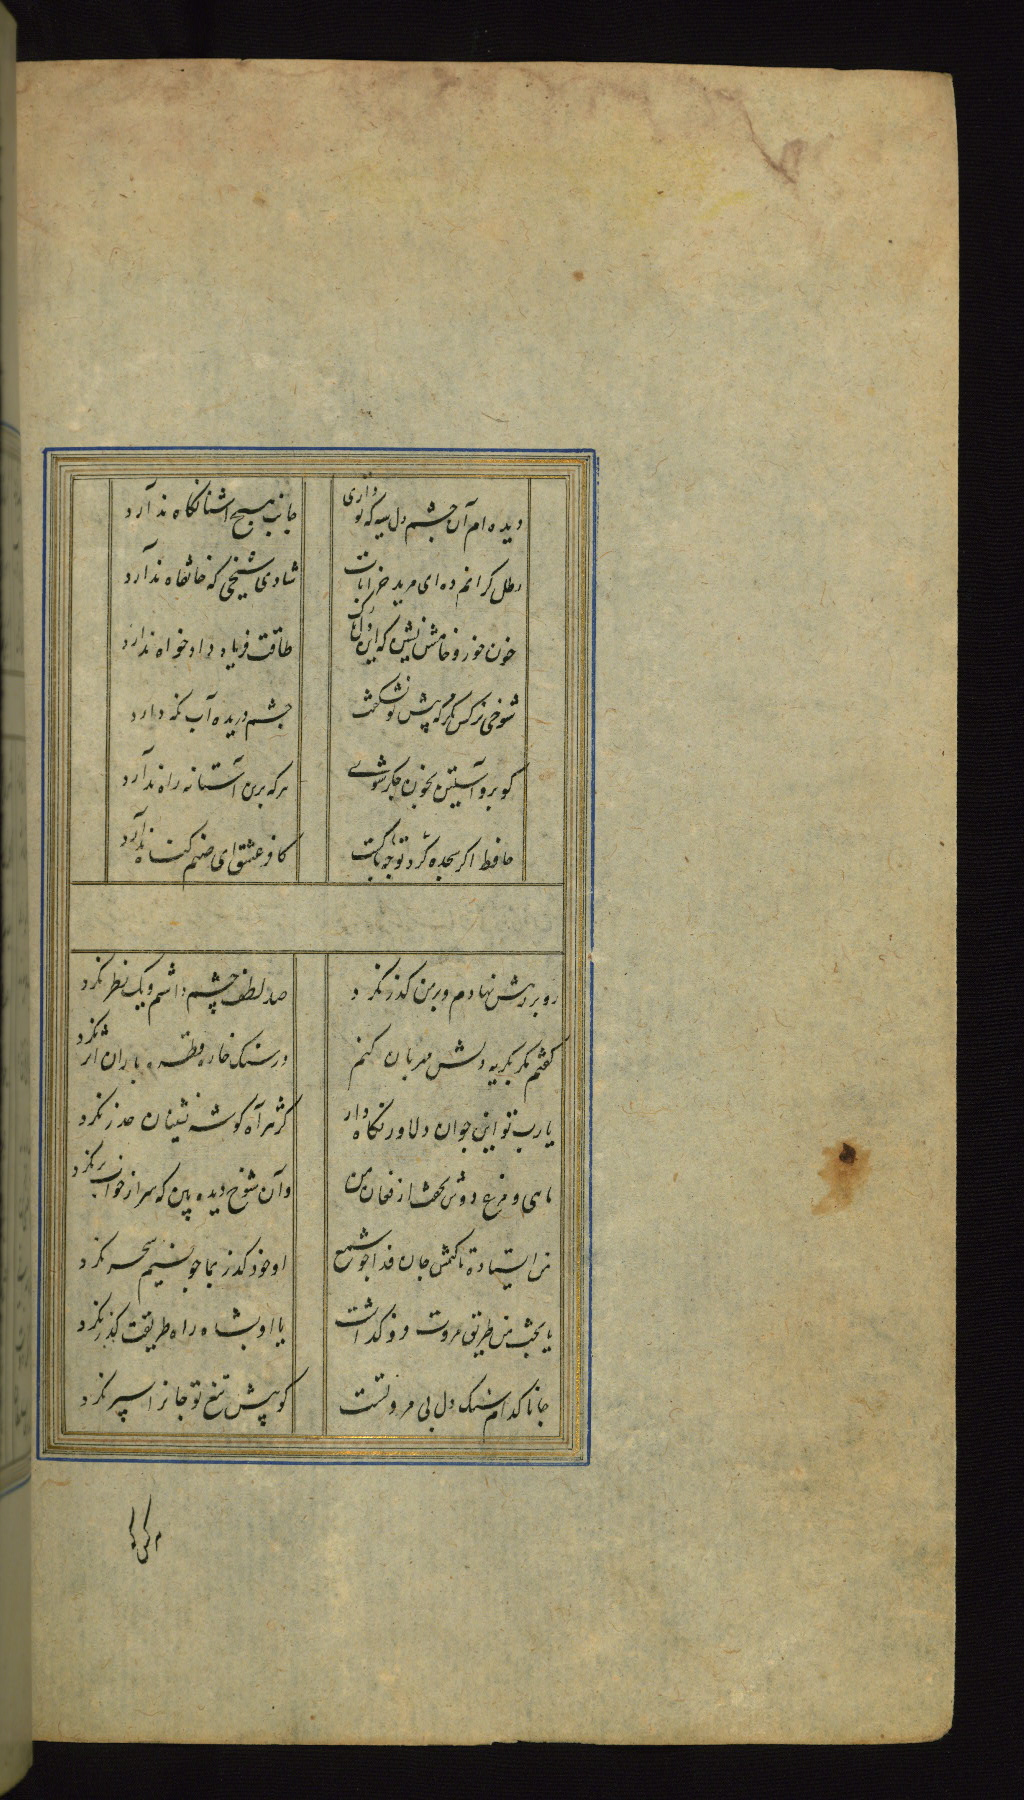 دیده ام آن چشم دل سیه که تو داری جانب هیچ اشنا نگاه ندارد
رطل گرانم ده ای مرید خرابات شادی شیخی که خانقاه ندارد
خون خور و خامش نشین که این دل نازک طاقت فریاد داد خواه ندارد
شوخی نرکس نکر که پیش تو بشکفت چشم دریده آب نگه دارد
کو برو آستین بخون جکر شوی هرکه برین آستانه راه ندارد
حافظ اکر سجده کرد تو چه باکست کافر عشق ای صنم گناه ندارد
رو بر رهش نهادم و بر من گذر نکرد صد لطف چشم داشتم و یک نظر نکرد
گفتم مکر بگریه دلش مهربان کنم در سنک خاره قطره باران اثر نکرد
یارب تو این جوان دلاور نگاه دار کز تیر آه گوشه نشینان حذر نکرد
ماهی و مرغ دوش نخفت از فغان من وآن شوخ دیده بین که سر از خواب بر نکرد
من ایستاده تا کنمش جان فدا چو شمع او خود گذر بما چو نسیم سحر نکرد
یا بخت من طریق مروت فرو گذاشت یا او بشاه راه طریقت گذر نکرد
جانا کدام سنک دل بی مروتست کو پیش تیغ تو جانرا سپر نکرد